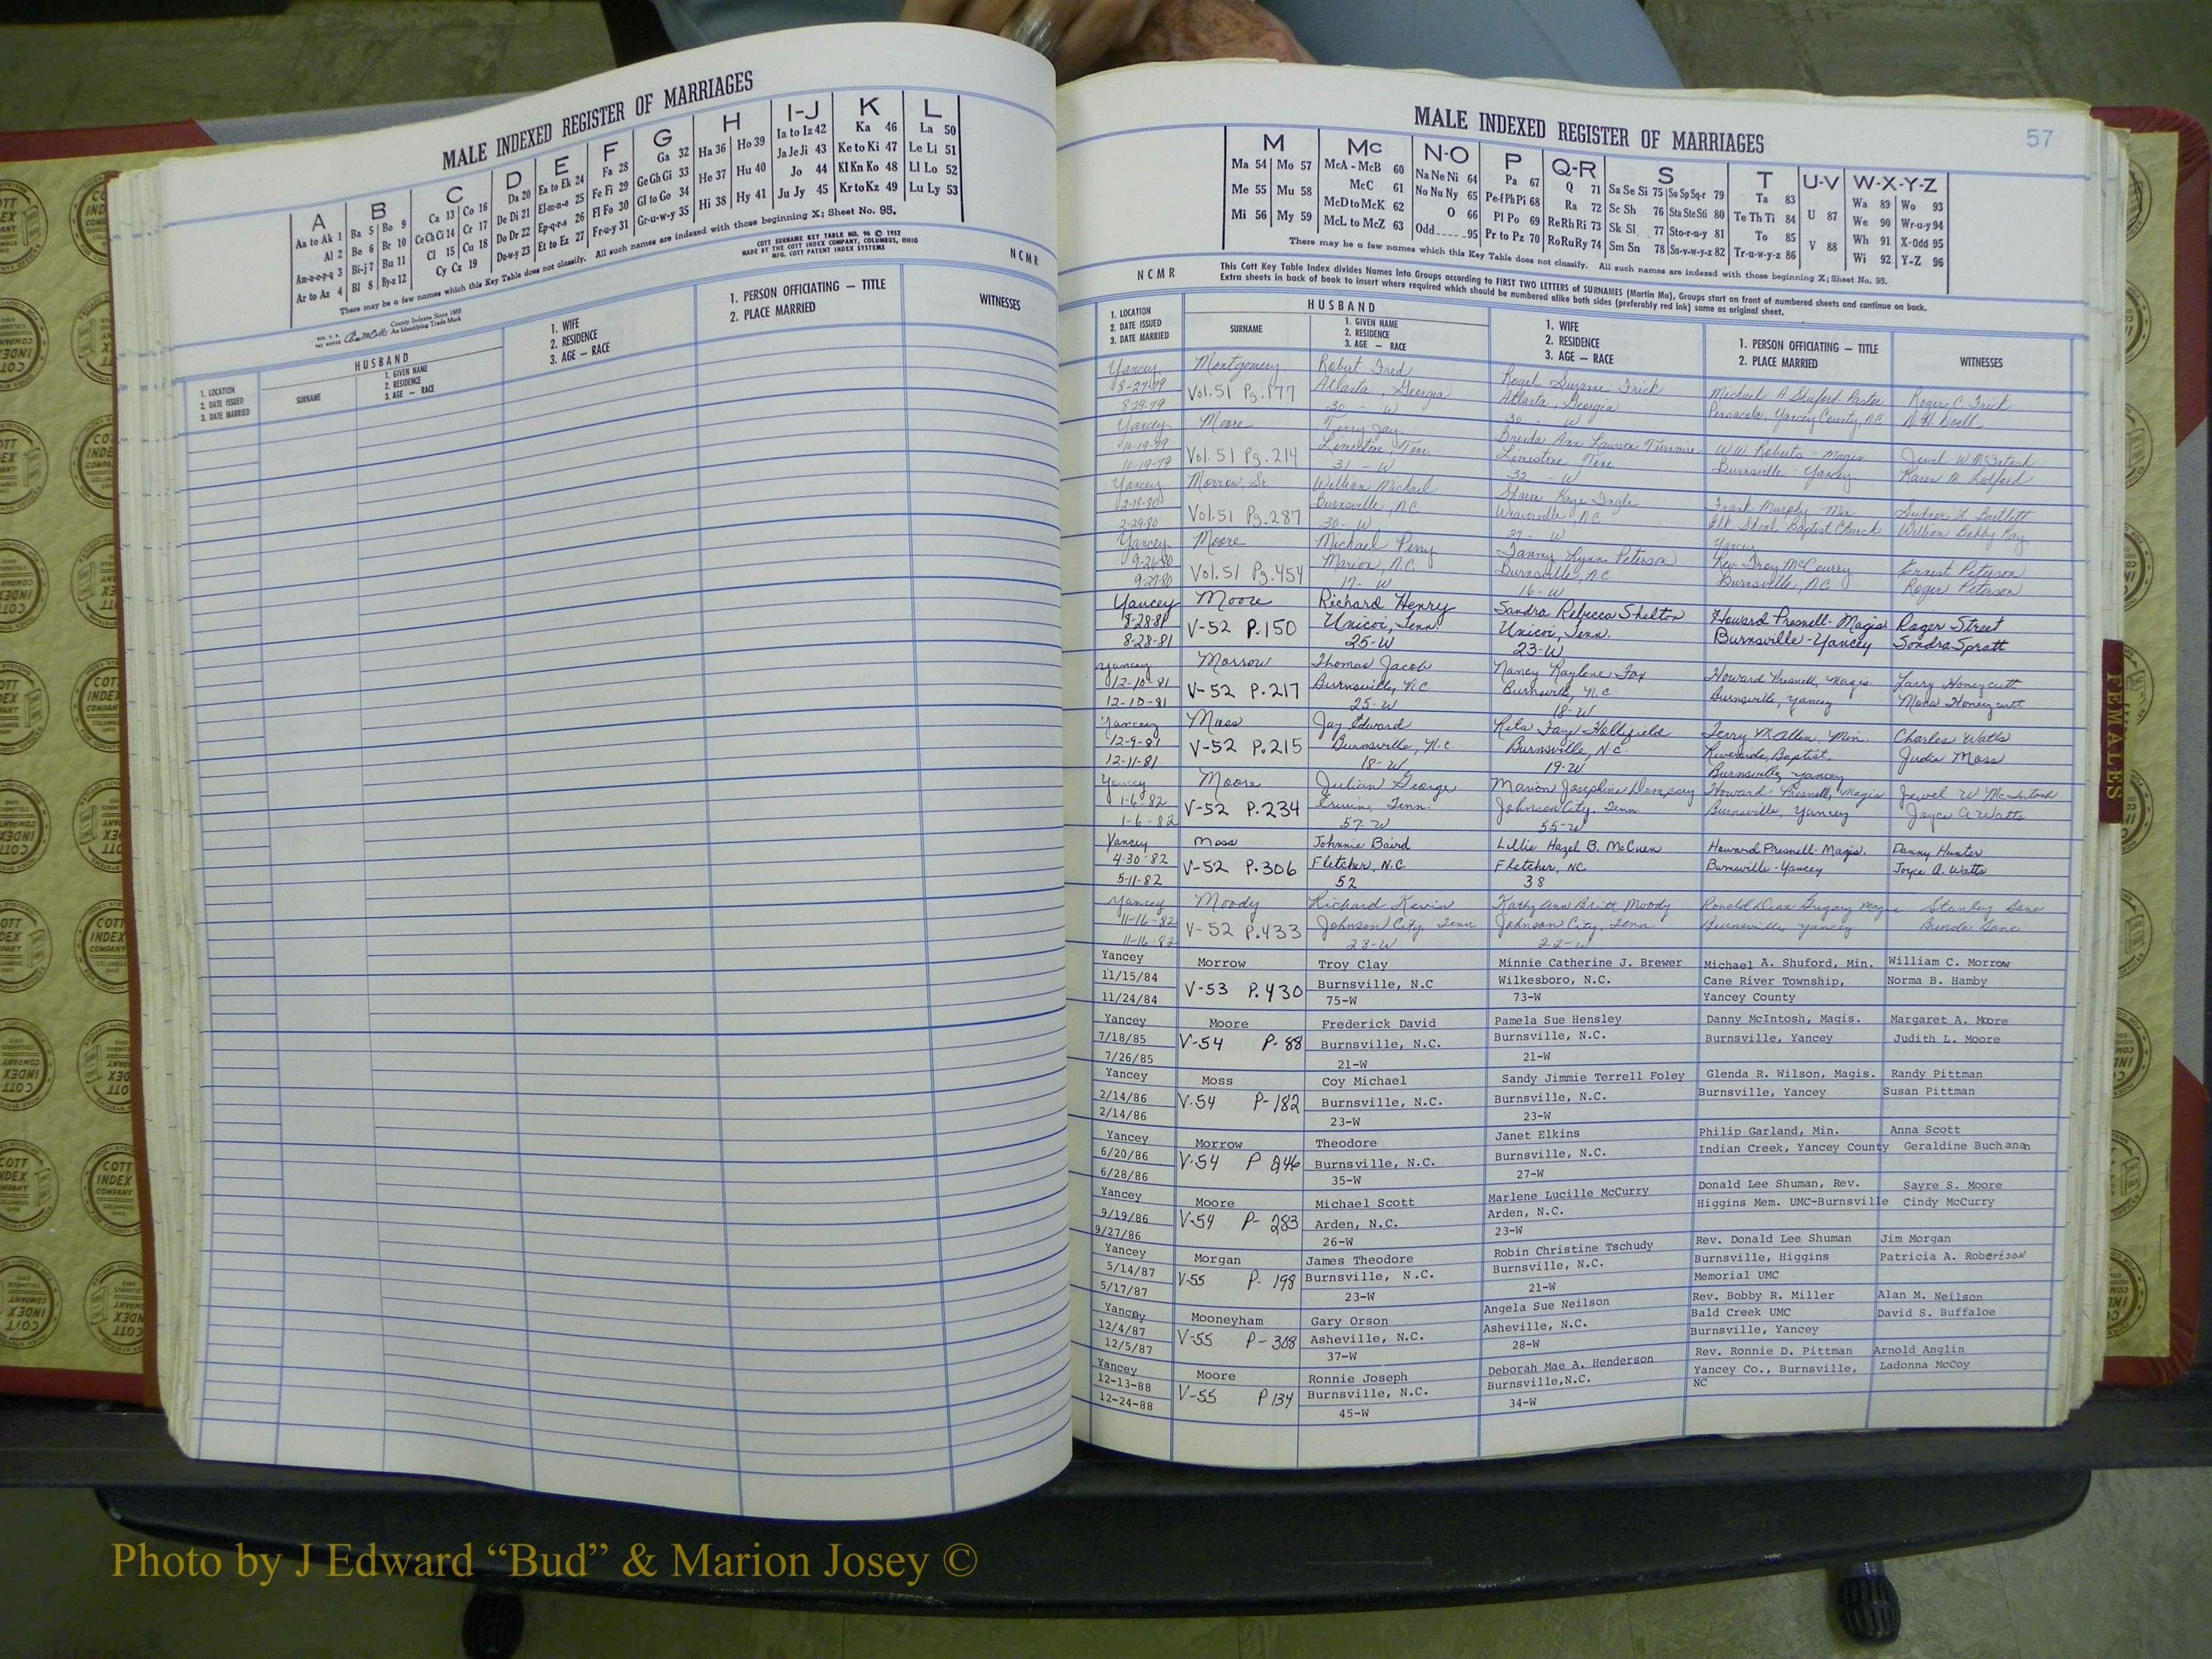 MALE INDEXED REGISTER OF MARRIAGES
A B C D E F G H I-J K L
Aa to Ak 1 Ba 5 Bo 9 Ca 13 Co 16 Da 20 Ea to Ek 24 Fa 28 Ga 32 Ha 36 Ho 39 Ia to Iz 42 Ka 46 La 50
Al 2 Be 6 Br 10 Ce Ch Ci 14 Cr 17 De Di 21 El-m-n-o 25 Fe Fi 29 Ge Gh Gi 33 He 37 Hu 40 Ja Je Ji 43 Ke to Ki 47 Le Li 51
Am-n-o-p-q 3 Bi-j 7 Bu 11 Cl 15 Cu 18 Do Dr 22 Ep-q-r-s 26 Fl Fo 30 Gl to Go 34 Hi 38 Hy 41 Jo 44 Kl Kn Ko 48 Ll Lo 52
Ar to Az 4 Bl 8 By-z 12 Cy Cz 19 Du-w-y 23 Et to Ez 27 Fr-u-y 31 Gr-u-w-y 35 Ju Jy 45 Kr to Kz 49 Lu Ly 53
There may be a few names which this Key Table does not classify. All such names are indexed with those beginning X; Sheet No. 95.
COTT SURNAME KEY TABLE NO. 96 © 1952
MADE BY THE COTT INDEX COMPANY, COLUMBUS, OHIO
MFG. COTT PATENT INDEX SYSTEMS
County Indexes Since 1888
An Identifying Trade Mark
NCMR
HUSBAND
1. LOCATION
2. DATE ISSUED
3. DATE MARRIED
SURNAME
1. GIVEN NAME
2. RESIDENCE
3. AGE — RACE
1. WIFE
2. RESIDENCE
3. AGE — RACE
1. PERSON OFFICIATING — TITLE
2. PLACE MARRIED
WITNESSES
MALE INDEXED REGISTER OF MARRIAGES
57
M Mc N-O P Q-R S T U-V W-X-Y-Z
Ma 54 Mo 57 McA - McB 60 Na Ne Ni 64 Pa 67 Q 71 Sa Se Si 75 So Sp Sq-r 79 Ta 83 U 87 Wa 89 Wo 93
Me 55 Mu 58 McC 61 No Nu Ny 65 Pe-f Ph Pi 68 Ra 72 Sc Sh 76 Sta Ste Sti 80 Te Th Ti 84 V 88 We 90 Wr-u-y 94
Mi 56 My 59 McD to McK 62 O 66 Pl Po 69 Re Rh Ri 73 Sk Sl 77 Sto-r-u-y 81 To 85 Wh 91 X-Odd 95
McL to McZ 63 Odd 95 Pr to Pz 70 Ro Ru Ry 74 Sm Sn 78 Su-v-w-y-z 82 Tr-u-w-y-z 86 Wi 92 Y-Z 96
There may be a few names which this Key Table does not classify. All such names are indexed with those beginning X; Sheet No. 95.
NCMR
This Cott Key Table Index divides Names into Groups according to FIRST TWO LETTERS of SURNAMES (Martin Ma), Groups start on front of numbered sheets and continue on back.
Extra sheets in back of book to insert where required which should be numbered alike both sides (preferably red ink) same as original sheet.
HUSBAND
1. LOCATION
2. DATE ISSUED
3. DATE MARRIED
SURNAME
1. GIVEN NAME
2. RESIDENCE
3. AGE — RACE
1. WIFE
2. RESIDENCE
3. AGE — RACE
1. PERSON OFFICIATING — TITLE
2. PLACE MARRIED
WITNESSES
Yancey Montgomery Robert Fred Suzanne Frick Michael A Shuford Pastor Roger C Frick
8-27-79 Vol. 51 Pg. 177 Atlanta, Georgia Atlanta, Georgia Pensacola, Yancey County, NC
8-29-79 30 - W 30 - W
Yancey Moore Terry Jay Brenda Ann Lawson W W Roberts - Magis Jewel W McIntosh
10-19-79 Vol. 51 Pg. 214 Limestone, Tenn Limestone, Tenn Burnsville - Yancey Karen M. Ledford
10-19-79 31 - W 32 - W
Yancey Morrow, Sr William Michael Sharon Kaye Ingle Frank Murphy - Min
2-18-80 Vol. 51 Pg. 287 Burnsville, NC Weaverville, NC Elk Shoal Baptist Church William Bobby Ray
2-29-80 30 - W 27 - W Yancey
Yancey Moore Michael Perry Tammy Lynn Peterson Rev. Troy McCurry Ernest Peterson
9-26-80 Vol. 51 Pg. 454 Marion, N.C. Burnsville, NC Burnsville, N.C Roger Peterson
9-27-80 17 - W 16 - W
Yancey Moore Richard Henry Sandra Rebecca Shelton Howard Presnell - Magis Roger Street
8-28-81 V-52 P.150 Unicoi, Tenn. Unicoi, Tenn. Burnsville - Yancey Sondra Spratt
8-28-81 25-W 23-W
Yancey Morrow Thomas Jacob Nancy Raylene Fox Howard Presnell, Magis Larry Honeycutt
12-10-81 V-52 P.217 Burnsville, N.C Burnsville, N.C Burnsville, Yancey Mona Honeycutt
12-10-81 25-W 18-W
Yancey Moss Jay Edward Rita Faye Hollifield Terry McAllen, Min. Charles Watts
12-9-81 V-52 P.215 Burnsville, N.C Burnsville, N.C. Riverside Baptist, Judia Moss
12-11-81 18-W 19-W Burnsville, Yancey
Yancey Moore Julian George Marion Josephine Dempsey Howard Presnell, Magis Jewel W McIntosh
1-6-82 V-52 P.234 Erwin, Tenn. Johnson City, Tenn Burnsville, Yancey Joyce A Watts
1-6-82 57-W 55-W
Yancey Moss Johnnie Baird Lillie Hazel B. McCuen Howard Presnell - Magis. Danny Hunter
4-30-82 V-52 P.306 Fletcher, N.C. Fletcher, NC Burnsville - Yancey Joyce A. Watts
5-11-82 52 38
Yancey Moody Richard Kevin Kathy Ann Britt Moody Ronald Dean Gregory Mag Stanley Lane
11-16-82 V-52 P.433 Johnson City, Tenn Johnson City, Tenn Burnsville, Yancey Brenda Lane
11-16-82 23-W 22-W
Yancey Morrow Troy Clay Minnie Catherine J. Brewer Michael A. Shuford, Min. William C. Morrow
11/15/84 V-53 P.430 Burnsville, N.C Wilkesboro, N.C. Cane River Township, Norma B. Hamby
11/24/84 75-W 73-W Yancey County
Yancey Moore Frederick David Pamela Sue Hensley Danny McIntosh, Magis. Margaret A. Moore
7/18/85 V-54 P-88 Burnsville, N.C. Burnsville, N.C. Burnsville, Yancey Judith L. Moore
7/26/85 21-W 21-W
Yancey Moss Coy Michael Sandy Jimmie Terrell Foley Glenda R. Wilson, Magis. Randy Pittman
2/14/86 V-54 P-182 Burnsville, N.C. Burnsville, N.C. Burnsville, Yancey Susan Pittman
2/14/86 23-W 23-W
Yancey Morrow Theodore Janet Elkins Philip Garland, Min. Anna Scott
6/20/86 V-54 P 246 Burnsville, N.C. Burnsville, N.C. Indian Creek, Yancey County Geraldine Buchanan
6/28/86 35-W 27-W
Yancey Moore Michael Scott Marlene Lucille McCurry Donald Lee Shuman, Rev. Sayre S. Moore
9/19/86 V-54 P- 283 Arden, N.C. Arden, N.C. Higgins Mem. UMC-Burnsville Cindy McCurry
9/27/86 26-W 23-W
Yancey Morgan James Theodore Robin Christine Tschudy Rev. Donald Lee Shuman Jim Morgan
5/14/87 V-55 P- 198 Burnsville, N.C. Burnsville, N.C. Burnsville, Higgins Patricia A. Robertson
5/17/87 23-W 21-W Memorial UMC
Yancey Mooneyham Gary Orson Angela Sue Neilson Rev. Bobby R. Miller Alan M. Neilson
12/4/87 V-55 P-308 Asheville, N.C. Asheville, N.C. Bald Creek UMC David S. Buffaloe
12/5/87 37-W 28-W Burnsville, Yancey
Yancey Moore Ronnie Joseph Deborah Mae A. Henderson Rev. Ronnie D. Pittman Arnold Anglin
12-13-88 V-55 P 134 Burnsville, N.C. Burnsville,N.C. Yancey Co., Burnsville, Ladonna McCoy
12-24-88 45-W 34-W NC
FEMALES
COTT INDEX COMPANY OHIO
Photo by J Edward “Bud” & Marion Josey ©